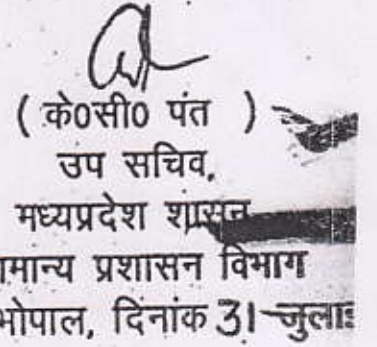 ( के0सी0 पंत )
उप सचिव,
मध्यप्रदेश शासन
मान्य प्रशासन विभाग
भोपाल, दिनांक 31 जुला